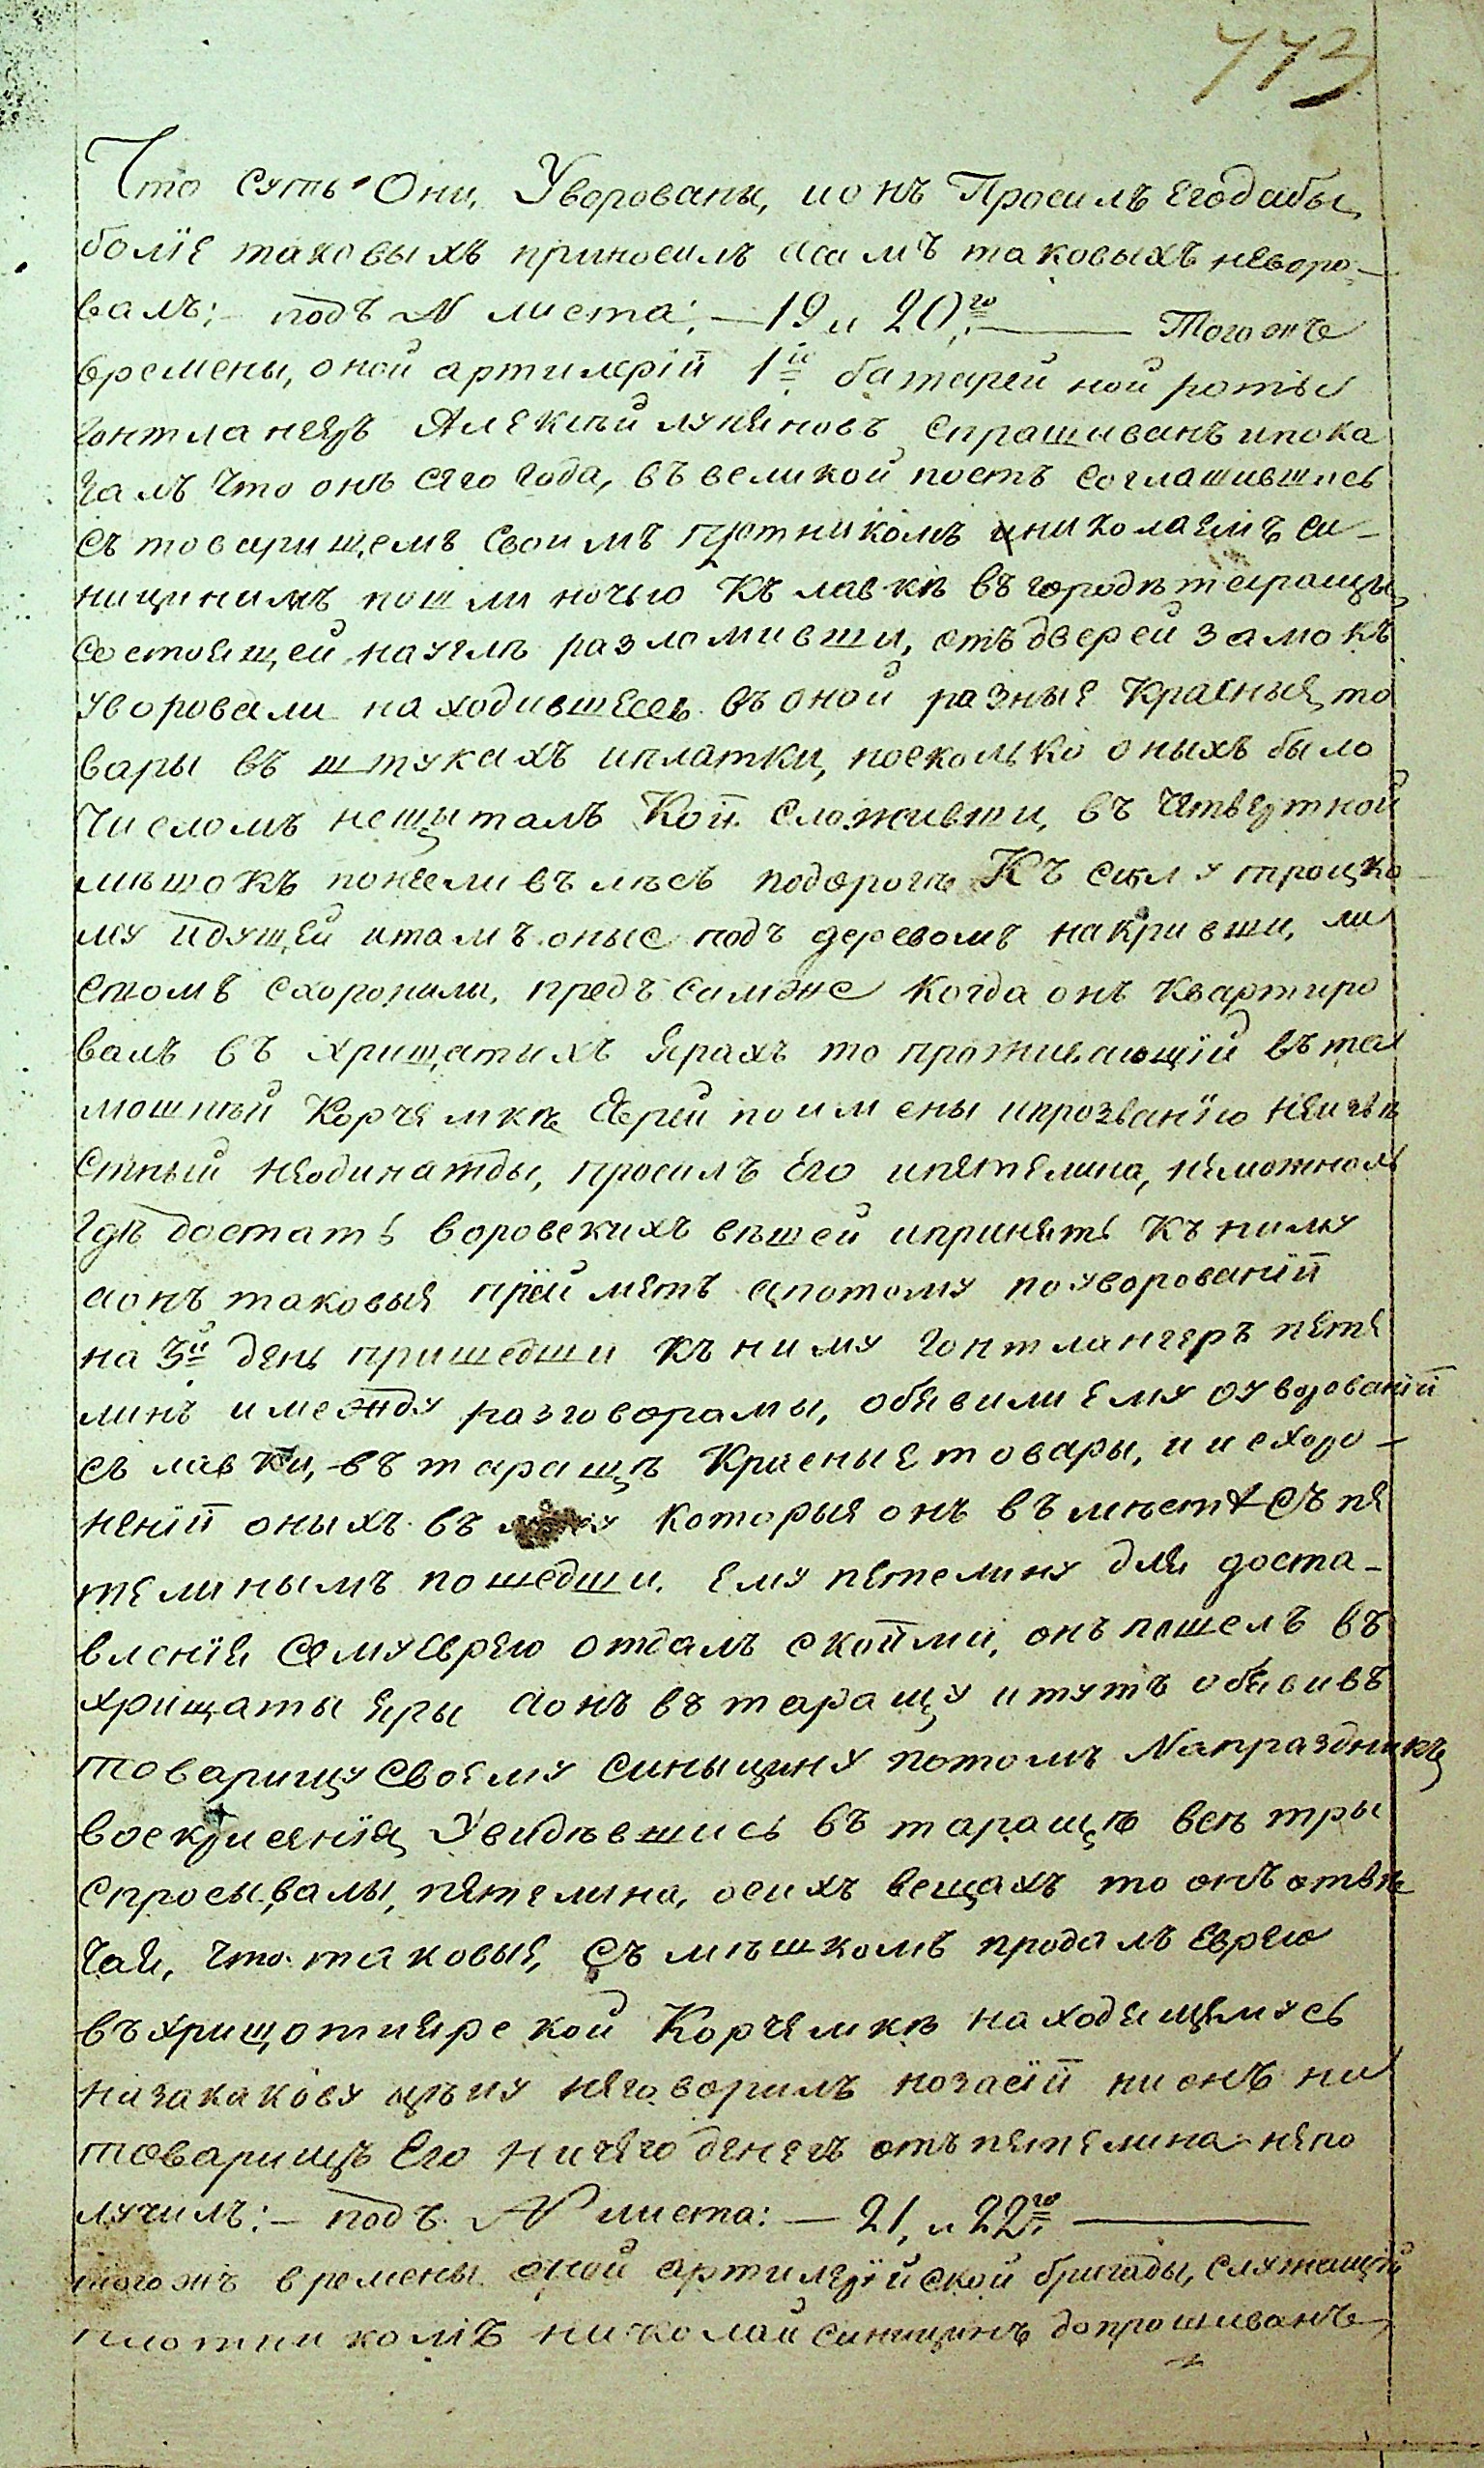 773
Что суть Они, Уворованы, ионъ Просилъ Егодабы
болїе таковыхъ приносилъ асамъ таковыхъ неворо-
валъ; — подъ № листа: — 19 и 20го. — Тогожъ
времены, оной артилерїй 1й батарейной роты
гонтлангеръ Алексѣй лукяновъ спрашиванъ ипока
залъ что онъ сего года, въ великой постъ согласившись
съ товарищемъ своимъ плотникомъ николаемъ си-
ницинимъ пошли ночью къ лавкѣ въ городѣ таращи
состоящей науглѣ разломивши, отъ дверей замокъ
уворовали находившеесь въ оной разные Красные то
вары въ штукахъ иплатки, носколько оныхъ было
числомъ нещиталъ Кои сложивши, въ четвертной
мѣшокъ понесли въ лѣсъ подорогѣ Къ селу троцко
му идущей итамъ оные подъ деревомъ накривши, ли
стомъ схоронили, предъ симже когда онъ квартиро
валъ въ хрищатихъ ярахъ то проживающїй въ та
мошнѣй Корчемкѣ Еврей поимены ипрозванїю неизвѣ
стный неодинажды, просилъ Его ипетелина, неможноль
гдѣ достать воровскихъ вѣщей ипринять къ нему
аонъ таковые прїйметъ апотому поуворованїй
на 3й день пришедши къ нему гонтлангеръ пете
линъ имежду разговорамы, обявили ему оуворованїй
съ лавки, въ таращѣ Красные товары, и исхоро-
ненїй оныхъ въ которые онъ вместѣ съ пе
телинымъ пошедши. ему петелину для доста-
вленїя семуеврею отдалъ скоими, онъ пошелъ въ
хрищаты яры аонъ въ таращу итутъ обявивъ
товарищу своему синицину потомъ Напраздникъ
воскресенїя Увидѣвшись въ таращѣ всѣ тры
спросывалы, петелина, осихъ вещахъ то онъ отвѣ
чая, что таковые, съ мѣшкомъ продалъ еврею
въ хрищотиярской Корчемкѣ находящемусь
ноза какову цѣну неговорилъ нозасїй ни онъ ни
товарищъ Его ничего денегъ отъ петелина непо
лучилъ: — подъ № листа: — 21, и 22го. —
тогожъ времены оной артилерїйской бригады, служащїй
плотникомъ николай синицинъ допрошиванъ